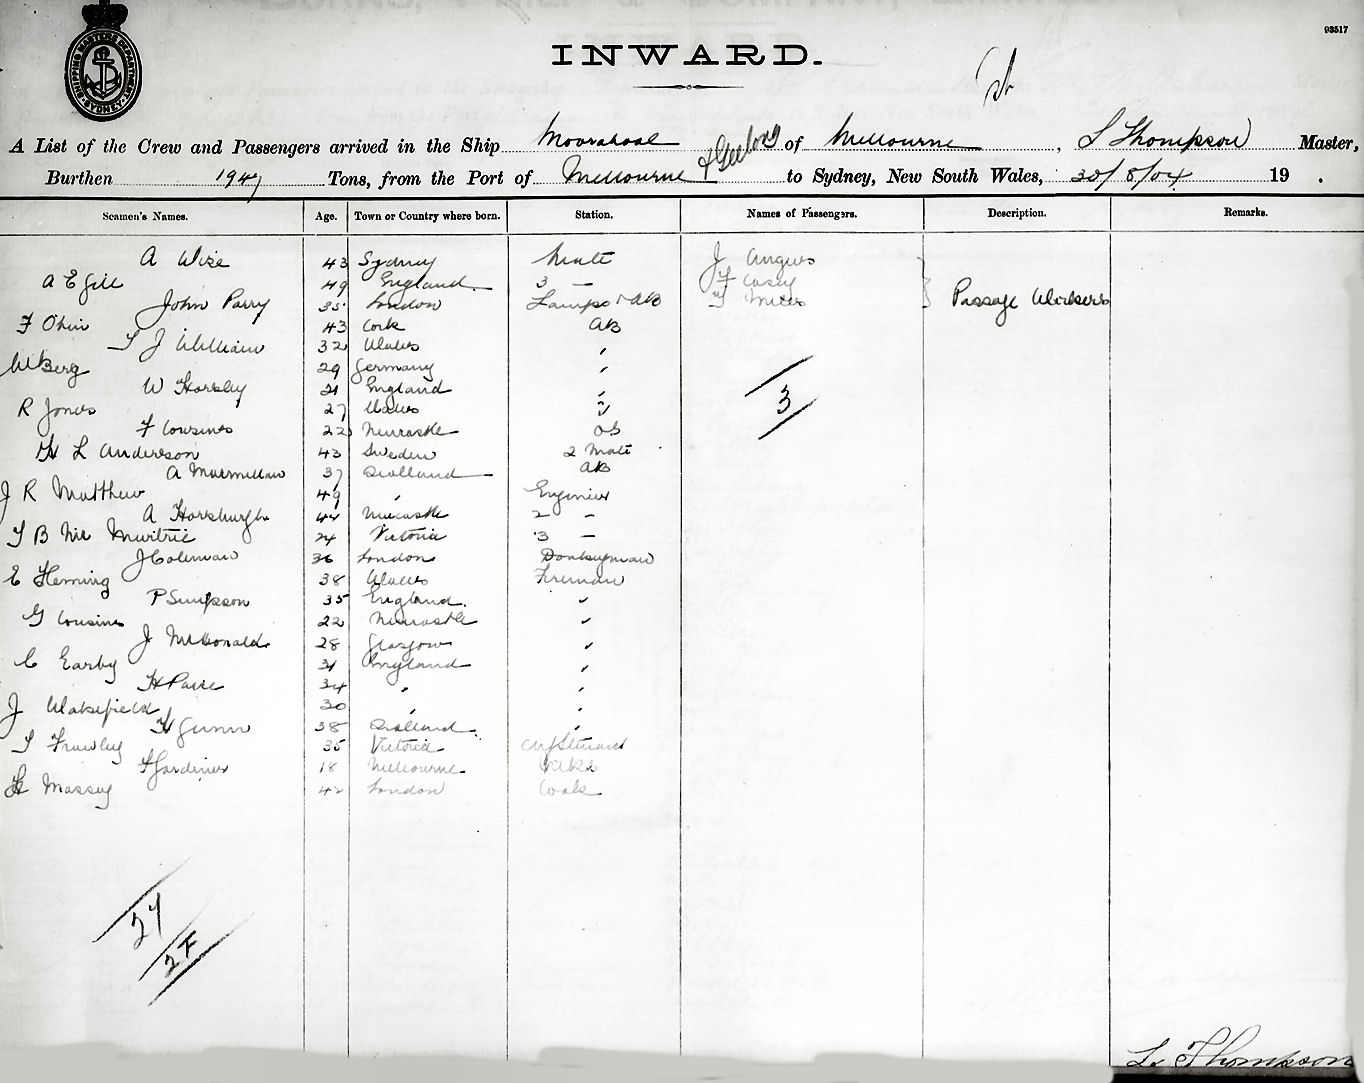 93517
SHIPPING MASTERS DEPARTMENT SYDNEY
INWARD.
A List of the Crew and Passengers arrived in the Ship Moorabool of Melbourne, L Thompson Master,
Burthen 1947 Tons, from the Port of Melbourne & Geelong to Sydney, New South Wales, 30/8/04 19 .
Seamen's Names. Age. Town or Country where born. Station. Names of Passengers. Description. Remarks.
A Wise 43 Sydney Mate J Angus
A E Gill 49 England 3 – F Casey
John Parry 35 London Lamps & AB Passage Workers
43 Cork AB
J William 32 Wales "
W Berg 29 Germany "
W Horsley 21 England "
R Jones 27 Wales "
F Cousins 22 Newcastle OS
H L Anderson 43 Sweden 2 Mate
A Macmillan 37 Scotland AB
J R Matthew 49 " Engineer
A Horsburgh 44 Newcastle 2 –
24 Victoria 3 –
J Coleman 36 London Donkeyman
E Fleming 38 Wales Fireman
P Simpson 35 England "
G Cousins 22 Newcastle "
J McDonald 28 Glasgow "
C Earby 31 England "
34 " "
J Wakefield 30 " "
H Gunn 38 Scotland "
Frawley 35 Victoria Ch Steward
F Gardiner 18 Melbourne
H Massey 42 London Cook
3
27
2F
L Thompson